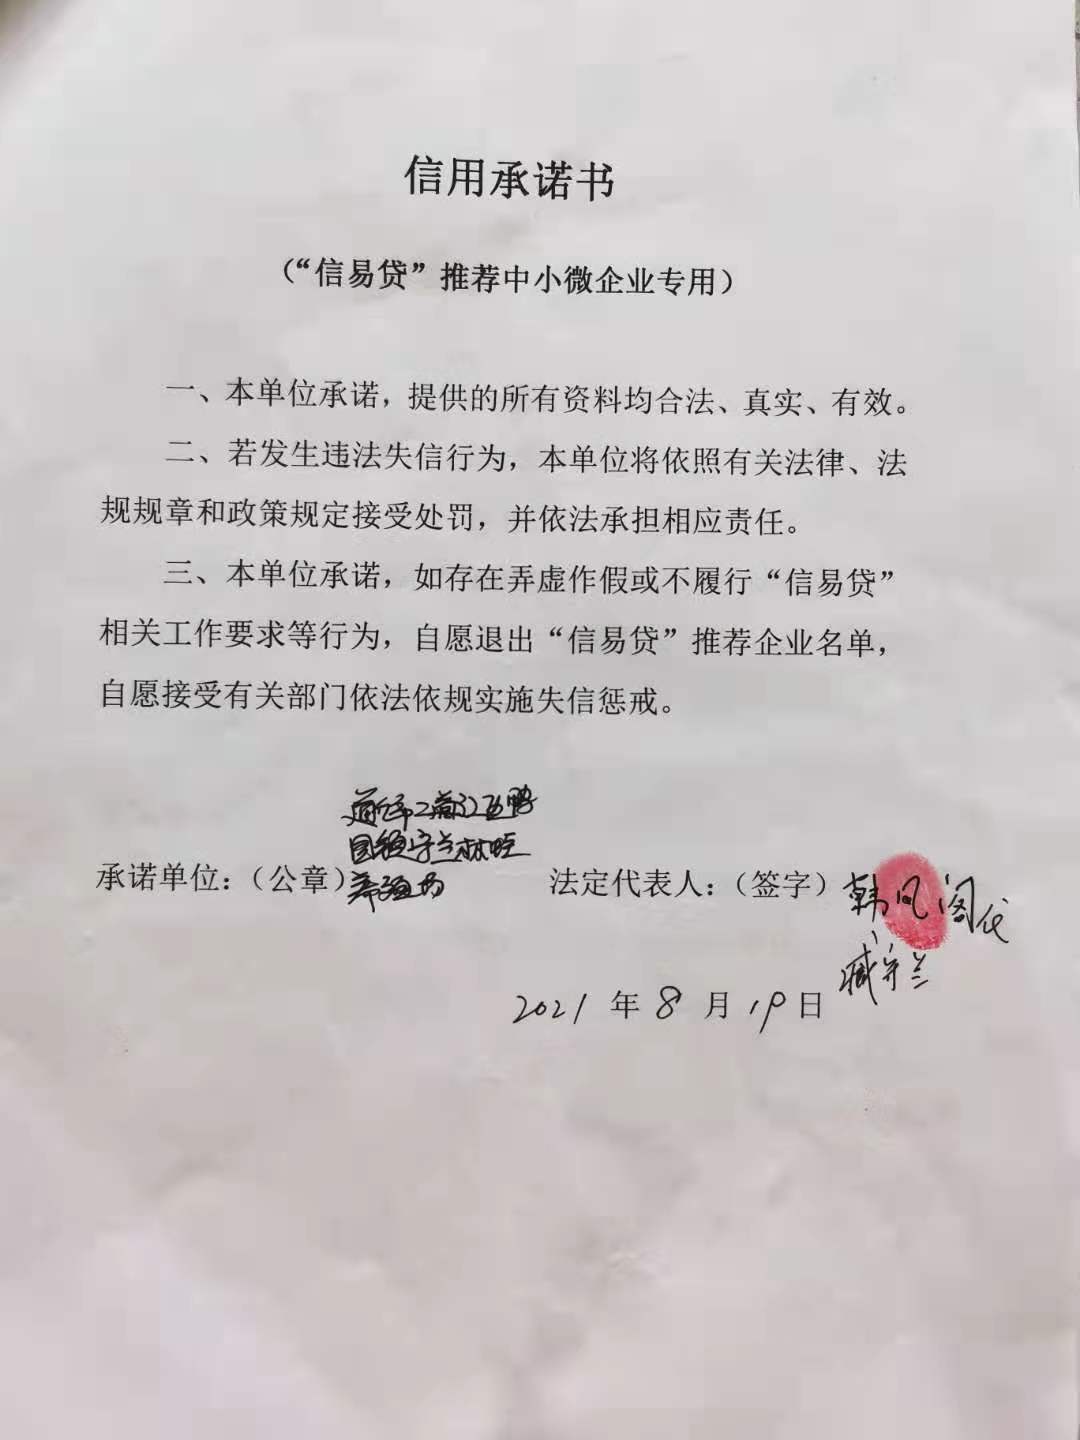 信用承诺书
（“信易贷”推荐中小微企业专用）
一、本单位承诺，提供的所有资料均合法、真实、有效。
二、若发生违法失信行为，本单位将依照有关法律、法
规规章和政策规定接受处罚，并依法承担相应责任。
三、本单位承诺，如存在弄虚作假或不履行“信易贷”
相关工作要求等行为，自愿退出“信易贷”推荐企业名单，
自愿接受有关部门依法依规实施失信惩戒。
承诺单位：（公章） 法定代表人：（签字）韩凤阁代
臧守兰
2021年8月19日